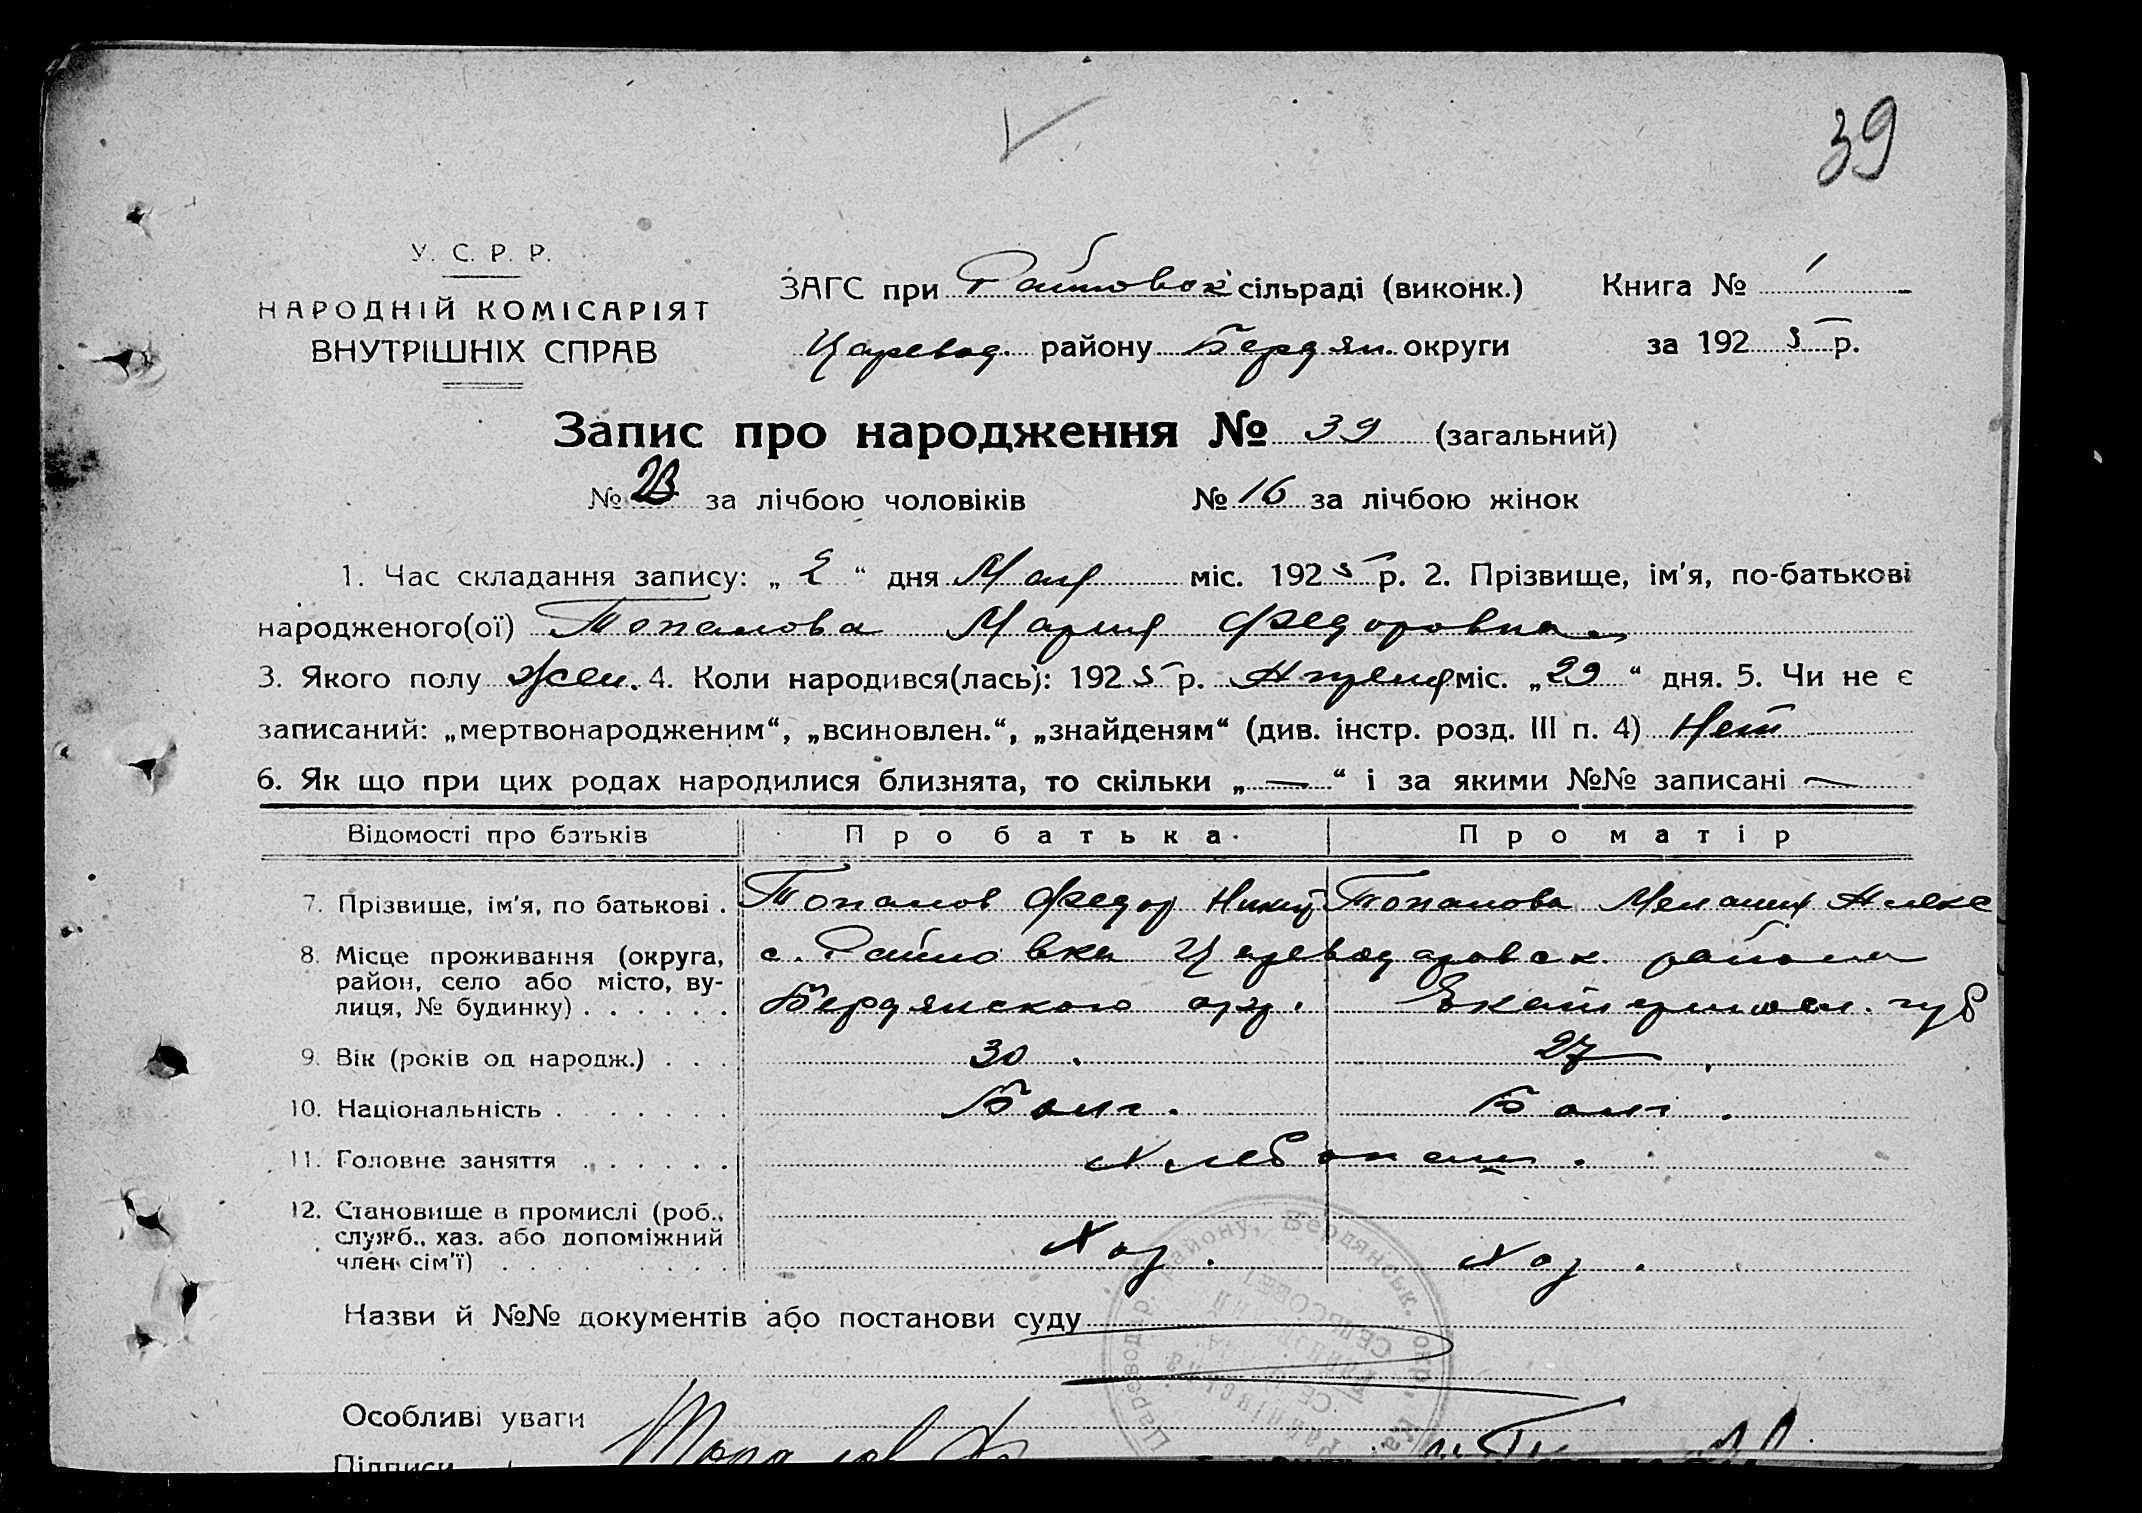 39
У. С. Р. Р.
НАРОДНІЙ КОМІСАРІЯТ
ВНУТРІШНІХ СПРАВ
ЗАГС при Райновск сільраді (виконк.) Книга № 1
Царевод. району Бердян. округи за 1925 р.
Запис про народження № 39 (загальний)
№ за лічбою чоловіків № 16 за лічбою жінок
1. Час складання запису: „ 2 “ дня Мая міс. 1925 р. 2. Прізвище, ім'я, по-батькові
народженого(ої) Топалова Мария Федоровна
3. Якого полу жен. 4. Коли народився(лась): 1925 р. Апреля міс. „29“ дня. 5. Чи не є
записаний: „мертвонародженим“, „всиновлен.“, „знайденям“ (див. інстр. розд. III п. 4) Нет
6. Як що при цих родах народилися близнята, то скільки „ — “ і за якими №№ записані —
Відомості про батьків Про батька Про матір
7. Прізвище, ім'я, по батькові . Топалов Федор Топалова Мелания Алекс
8. Місце проживання (округа, с. Райновка Цареводаровск. района
район, село або місто, ву-
лиця, № будинку) . . . . . . Бердянского окр. Екатериносл. губ
9. Вік (років од народж.) . . . 30 . 27
10. Національність . . . . . . . Болг. Болг.
11. Головне заняття . . . . . . Хлебопаш.
12. Становище в промислі (роб.,
служб., хаз. або допоміжний Хоз. Хоз.
член сім'ї) . . . . . . . .
Назви й №№ документів або постанови суду
Особливі уваги
Підписи Топалов
Царевод.р. району, Бердянськ. окр.
СЕЛЬСОВЕТ